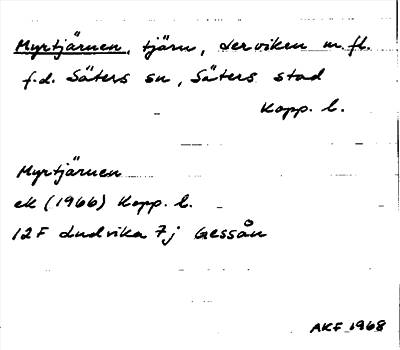 Myrtjärnen, tjärn, Lerviken m.fl.
f.d. Säters sn, Säters stad
Kopp. l.
Myrtjärnen
ek (1966) Kopp. l.
12F Ludvika 7j Gessån
AKF 1968